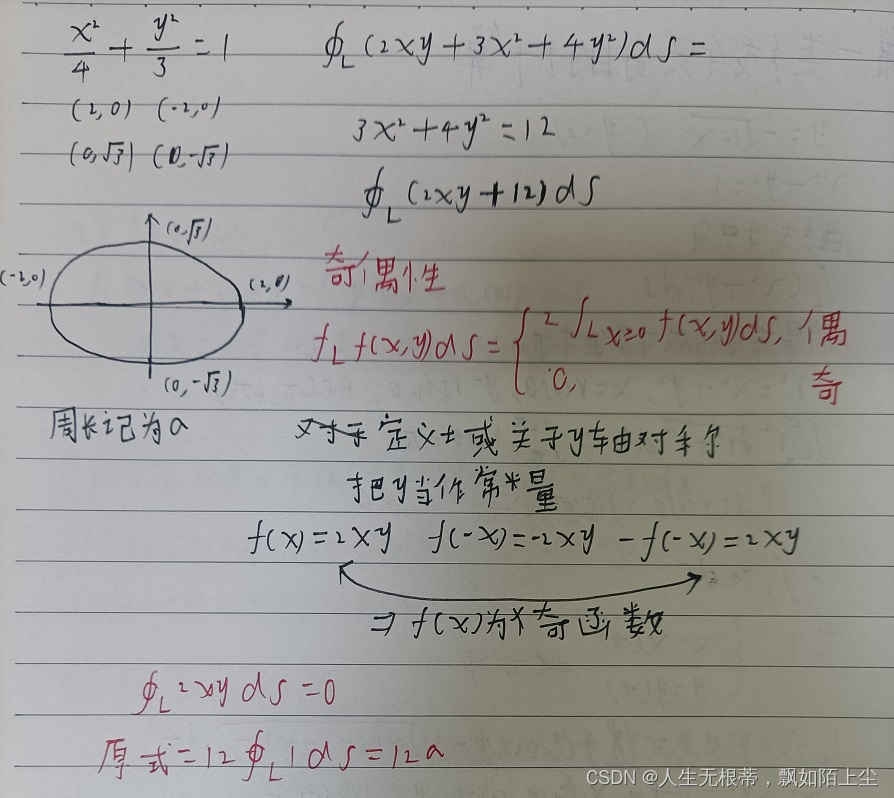 x²/4 + y²/3 = 1
∮_L (2xy + 3x² + 4y²) ds =
(2,0) (-2,0)
(0,√3) (0,-√3)
3x² + 4y² = 12
∮_L (2xy + 12) ds
(0,√3)
(-2,0)
(2,0)
(0,-√3)
周长记为a
奇偶性
∫_L f(x,y) ds = { 2∫_L x≥0 f(x,y) ds, 偶
0, 奇
对于定义域关于y轴对称
把y当作常量
f(x) = 2xy f(-x) = -2xy -f(-x) = 2xy
⇒ f(x)为x奇函数
∮_L 2xy ds = 0
原式 = 12∮_L 1 ds = 12a
CSDN @人生无根蒂，飘如陌上尘